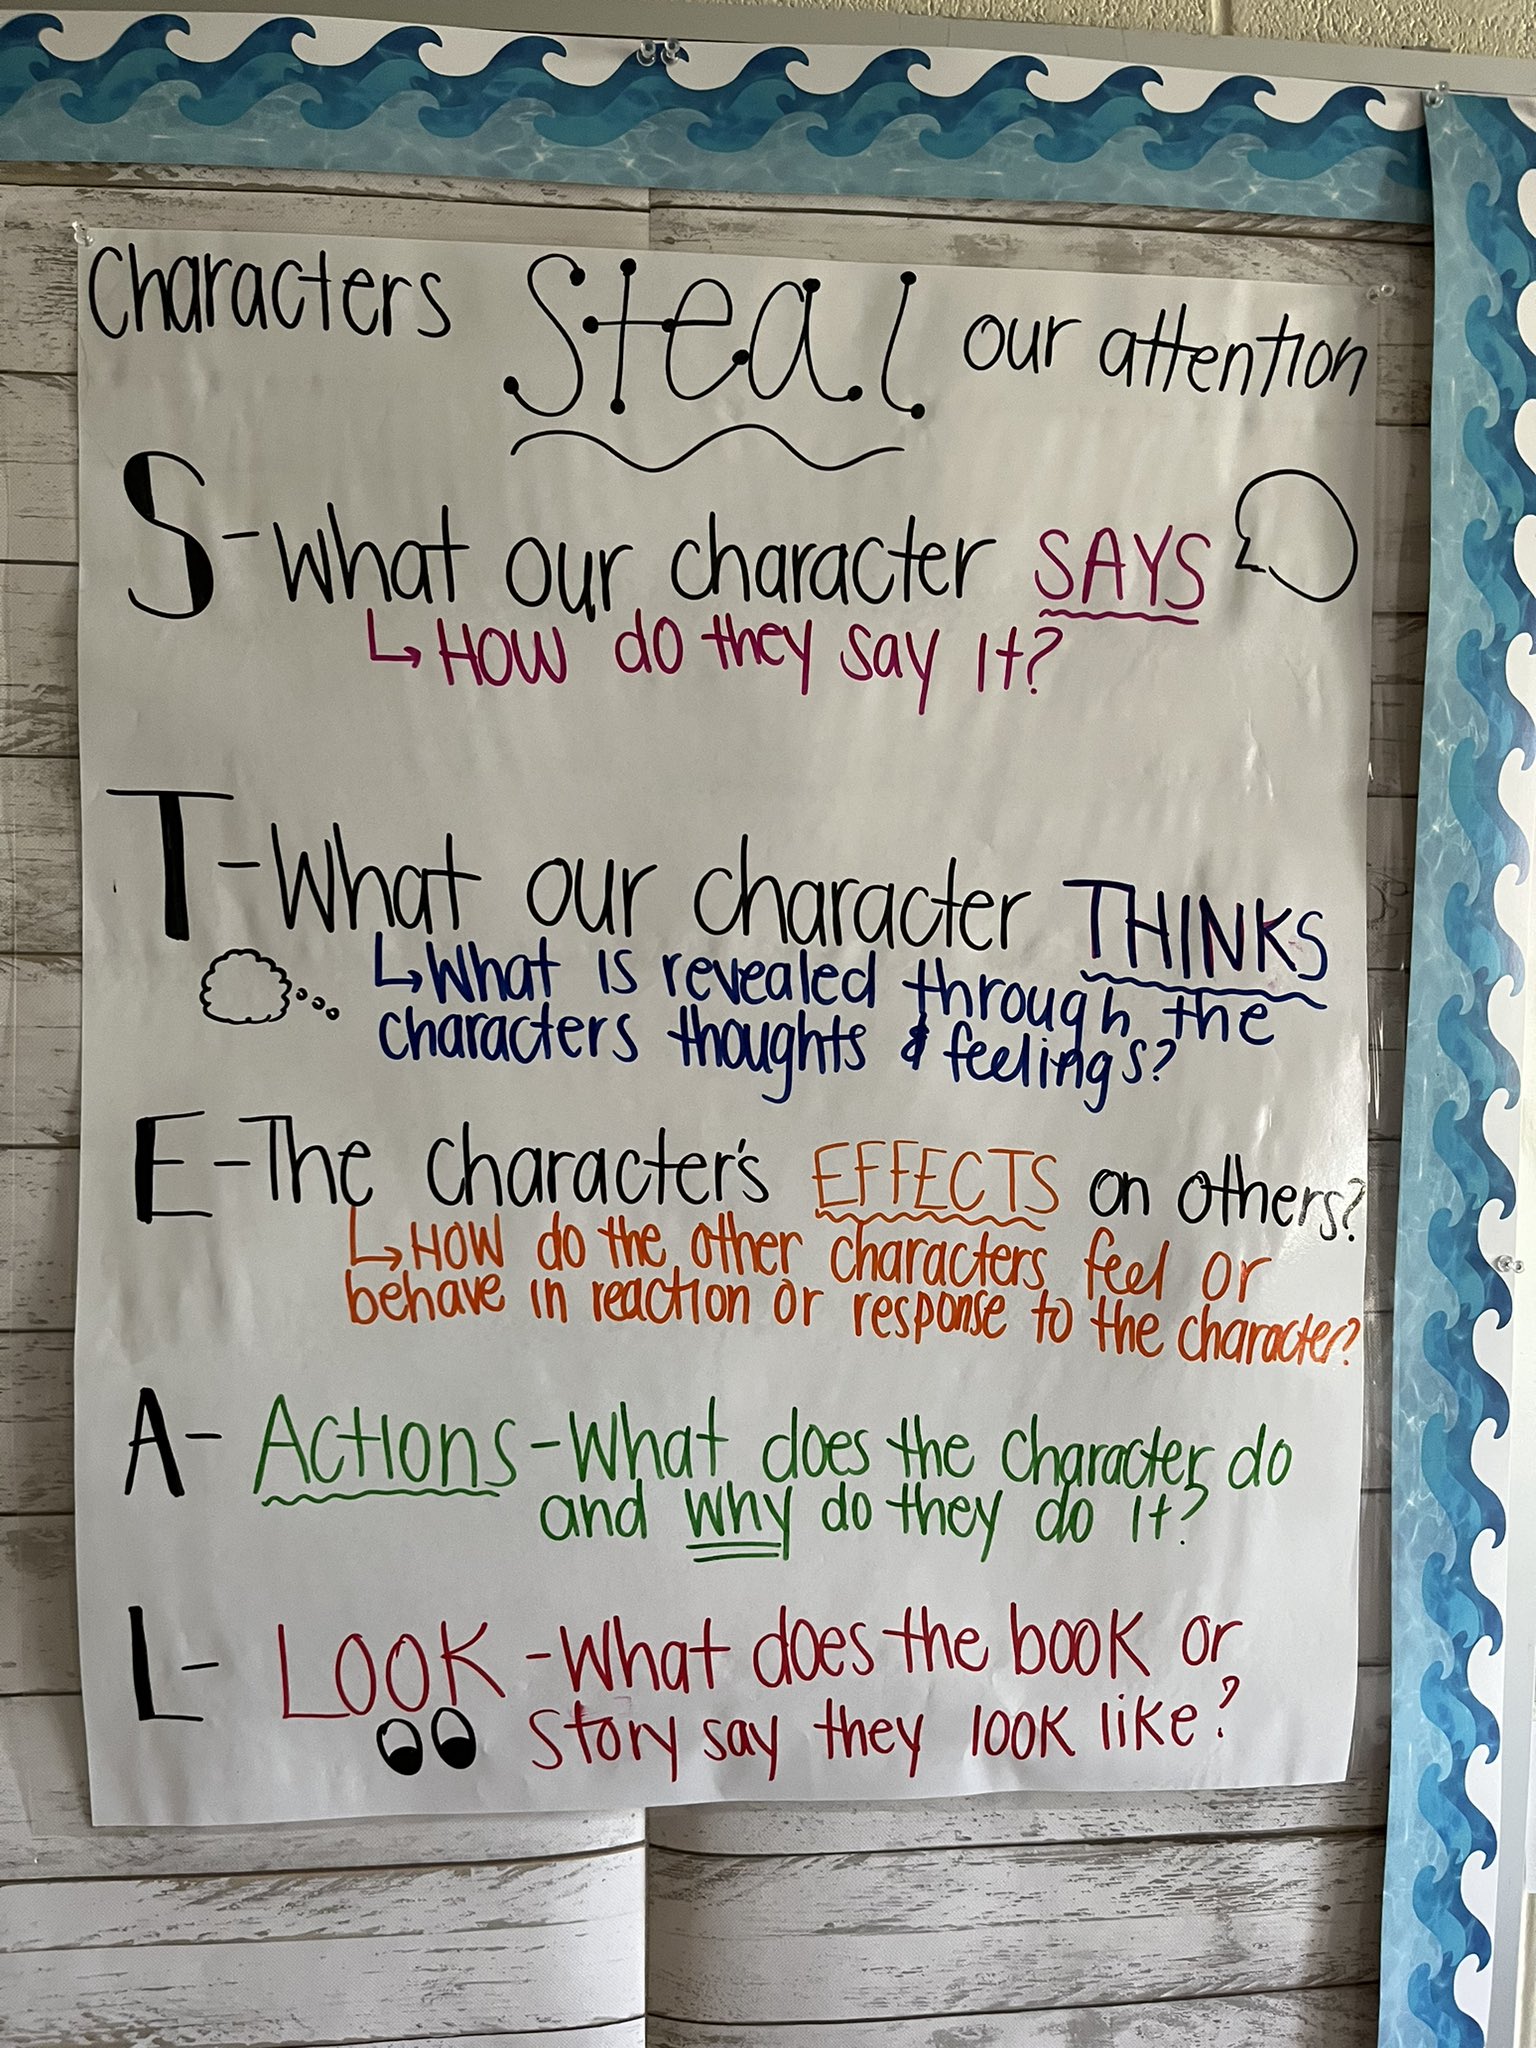 Characters steal our attention
S-What our character SAYS
↳HOW do they say it?
T-What our character THINKS
↳What is revealed through the
characters thoughts & feelings?
E-The character's EFFECTS on others?
↳HOW do the other characters feel or
behave in reaction or response to the character?
A- Actions-What does the character do
and why do they do it?
L- LOOK-What does the book or
story say they look like?